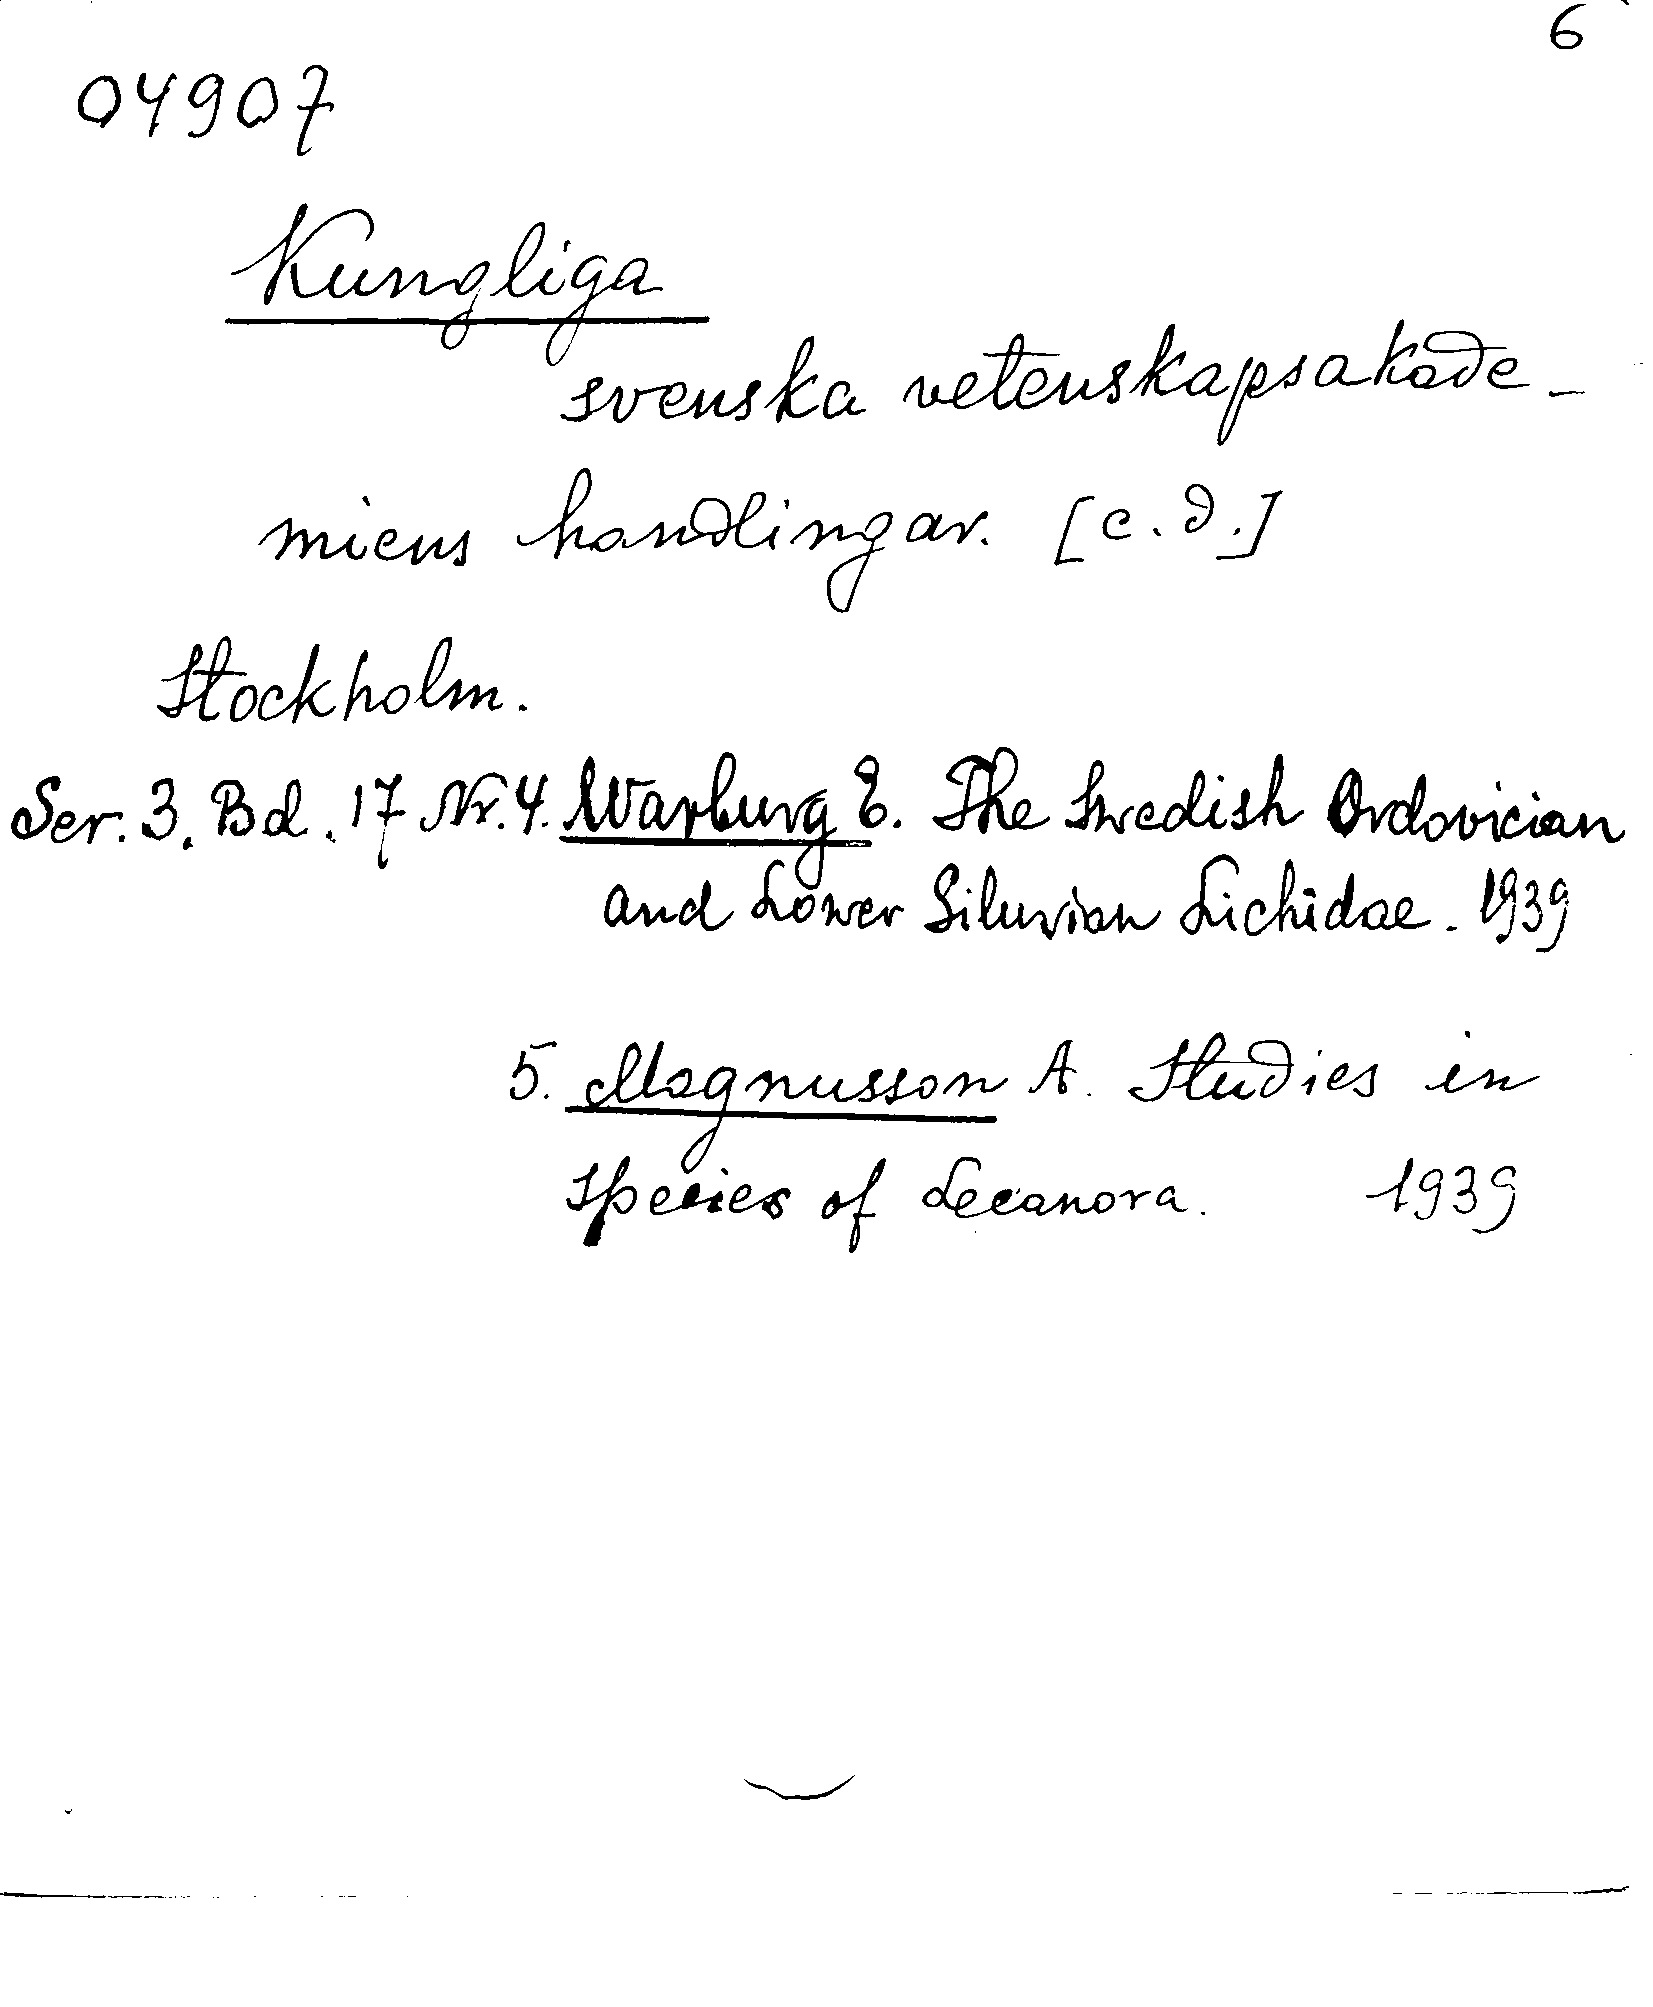 6
04907
Kungliga
svenska vetenskapsakade-
miens handlingar. [c.d.]
Stockholm.
Ser. 3. Bd. 17 Nr. 4. Warburg E. The Swedish Ordovician
and Lower Silurian Lichidae. 1939
5. Magnusson A. Studies in
species of Lecanora. 1939